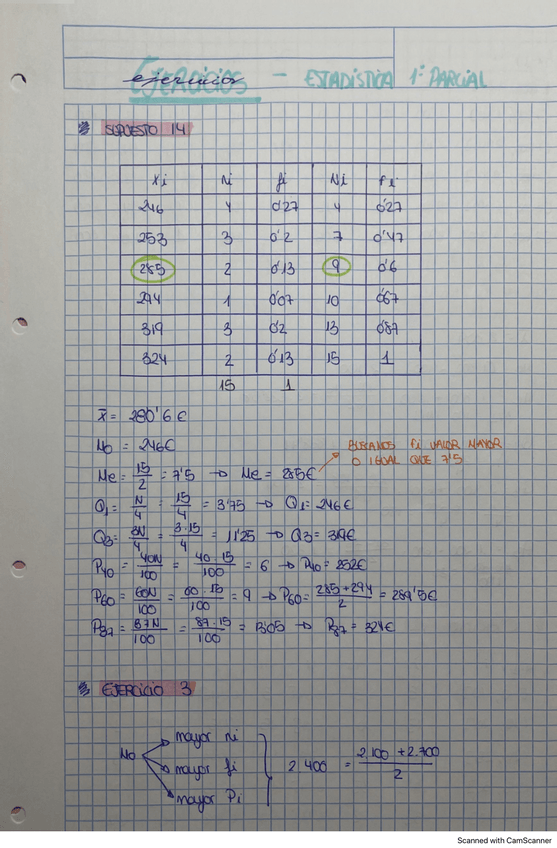 ejercicios
EJERCICIOS - ESTADÍSTICA 1º PARCIAL
SUPUESTO 14
xi ni fi Ni Fi
246 4 0'27 4 0'27
253 3 0'2 7 0'47
285 2 0'13 9 0'6
294 1 0'07 10 0'67
319 3 0'2 13 0'87
324 2 0'13 15 1
15 1
x̄ = 280'6 €
Mo = 246€
BUSCAMOS Fi VALOR MAYOR
O IGUAL QUE 7'5
Me = 15/2 = 7'5 → Me = 285€
Q1 = N/4 = 15/4 = 3'75 → Q1 = 246€
Q3 = 3N/4 = 3·15/4 = 11'25 → Q3 = 319€
P40 = 40N/100 = 40·15/100 = 6 → P40 = 252€
P60 = 60N/100 = 60·15/100 = 9 → P60 = 285+294/2 = 289'5€
P87 = 87N/100 = 87·15/100 = 13'05 → P87 = 324€
EJERCICIO 3
Mo
mayor ni
mayor fi
mayor Pi
2.400 = 2.100 + 2.700/2
Scanned with CamScanner